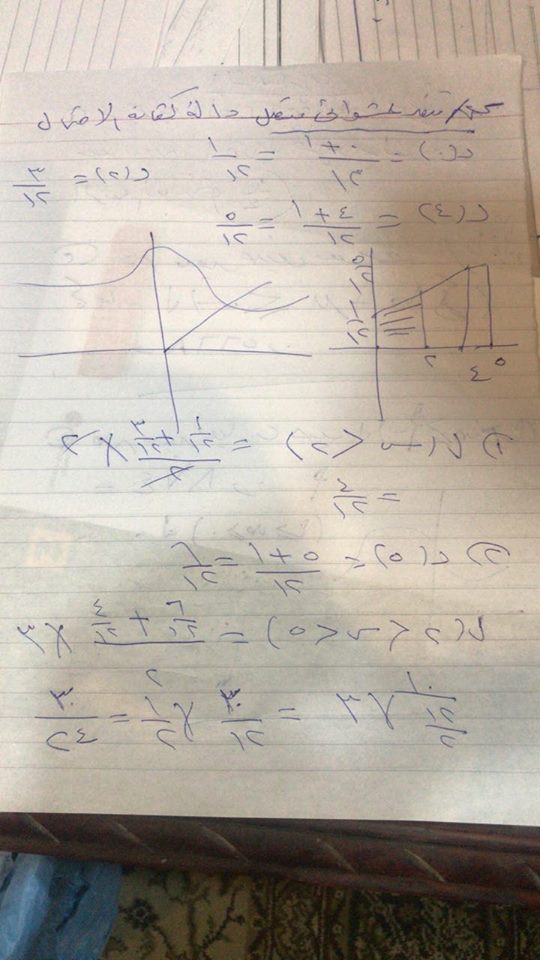 متغير عشوائي متصل دالة كثافة الاحتمال
د(٠) = (٠+١)/١٢ = ١/١٢
د(٢) = ٣/١٢
د(٤) = (٤+١)/١٢ = ٥/١٢
٥/١٢
١/١٢
٢ ٤ ٥
١) ل(س < ٢) = (١/١٢ + ٣/١٢)/٢ × ٢
= ٤/١٢
٢) د(٥) = (٥+١)/١٢ = ٦/١٢
ل(٢ < س < ٥) = (٦/١٢ + ٤/١٢)/٢ × ٣
(١٠/١٢)/٢ × ٣ = ٣٠/١٢ × ١/٢ = ٣٠/٢٤